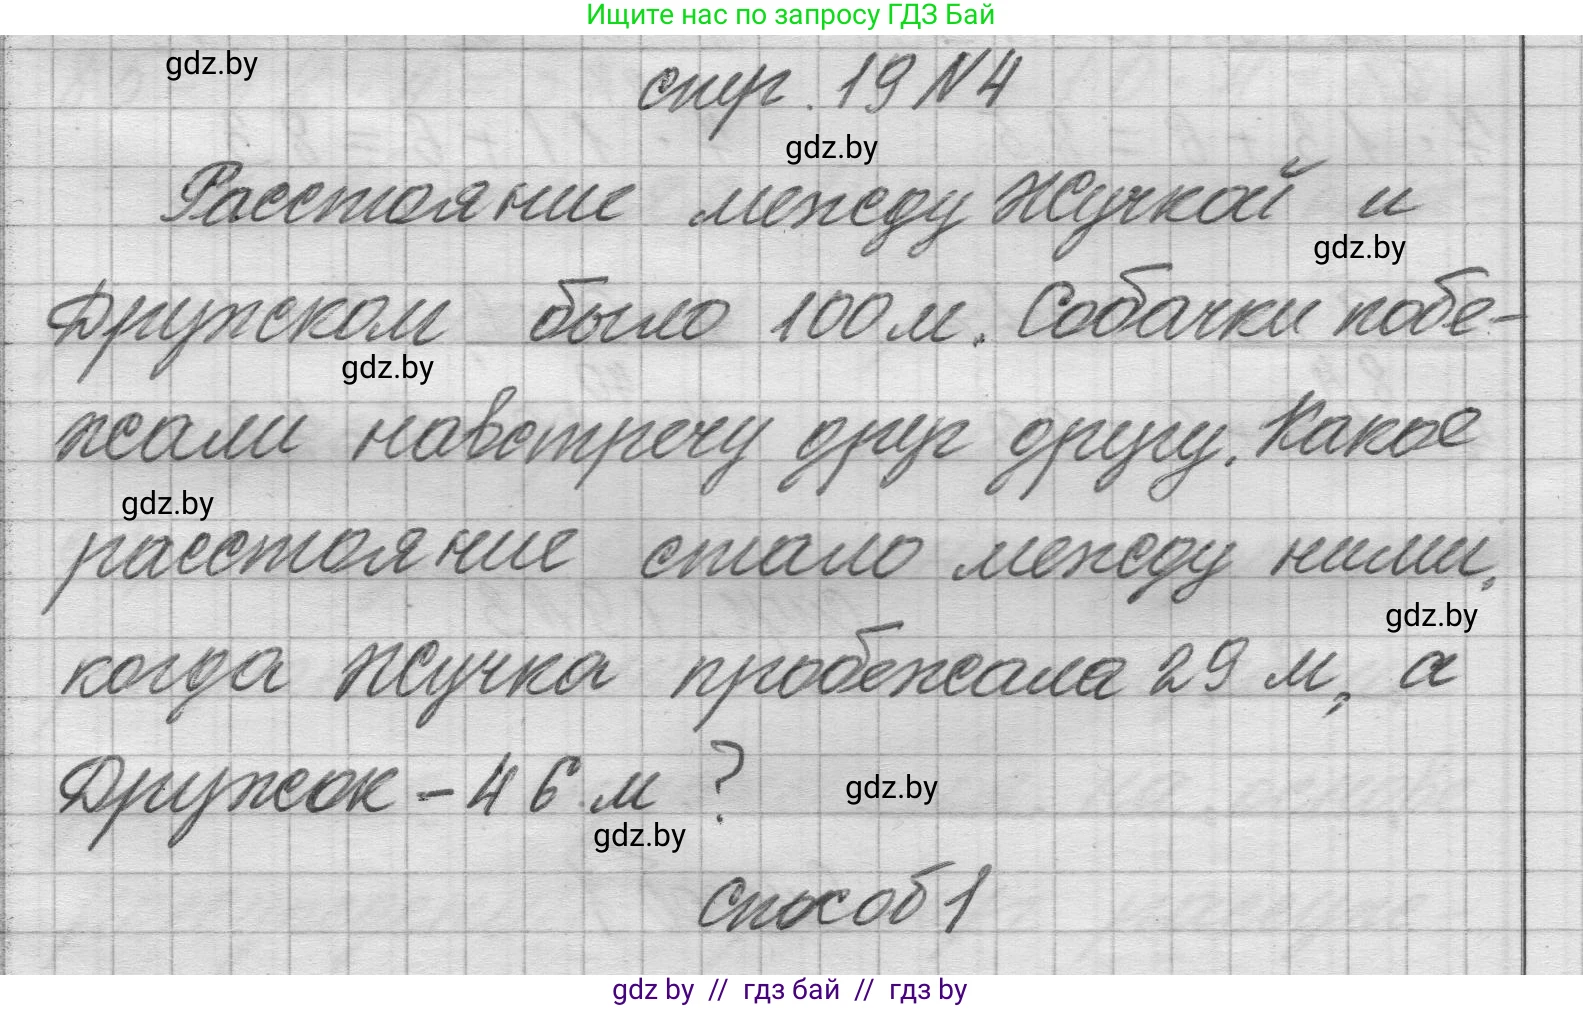 Ищите нас по запросу ГДЗ Бай
gdz.by
стр. 19 N 4
gdz.by
Расстояние между Жучкой и
gdz.by
Дружком было 100 м. Собачки побе-
gdz.by
жали навстречу друг другу. Какое
gdz.by
расстояние стало между ними,
gdz.by
когда Жучка пробежала 29 м, а
Дружок - 46 м ?
gdz.by
gdz.by
способ 1
gdz by // гдз бай // гдз by